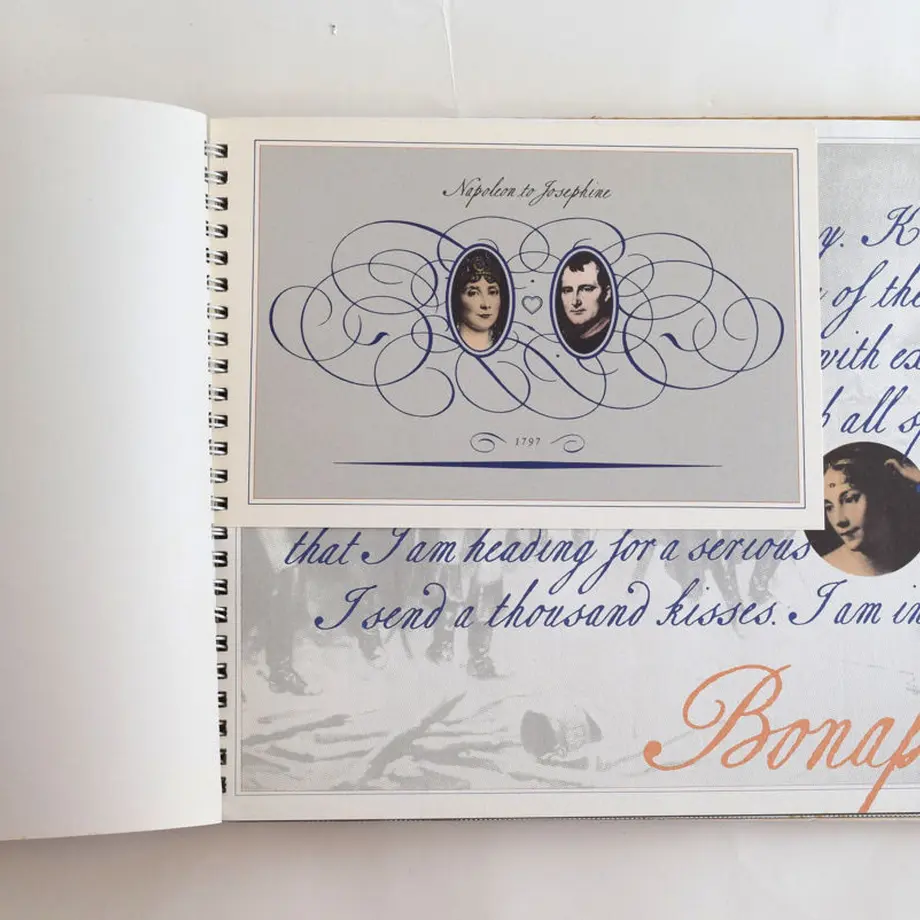 Napoleon to Josephine
1797
y. K
of the
with ex
all sp
that I am heading for a serious
I send a thousand kisses. I am in
Bonap